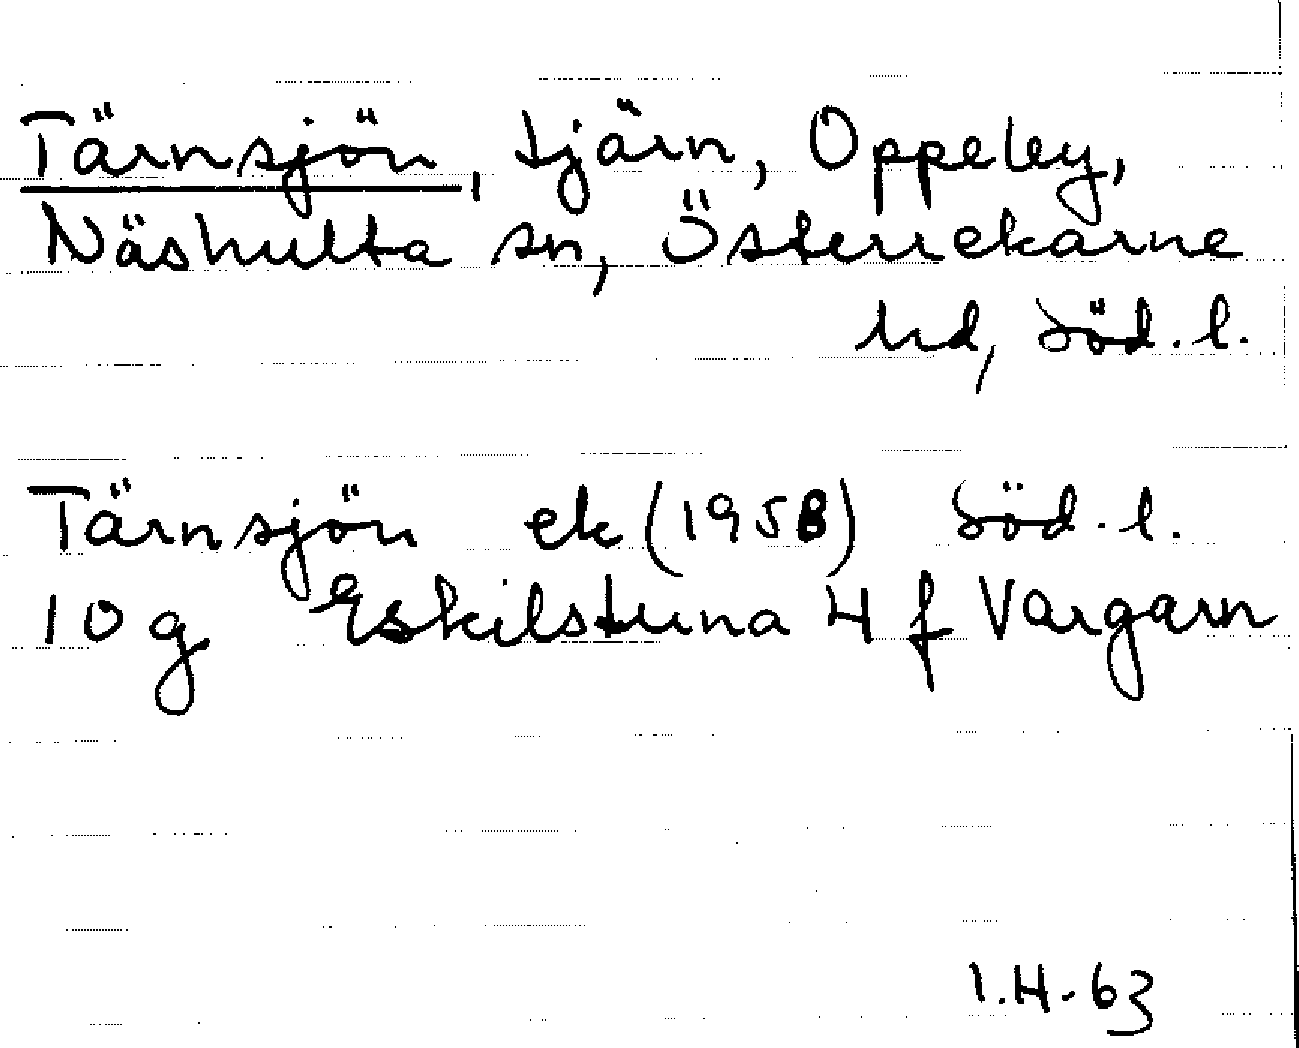 Tärnsjön, tjärn, Oppeby,
Näshulta sn, Österrekarne
hd, Söd.l.
Tärnsjön ek (1958) Söd.l.
10 g Eskilstuna 4 f Vargarn
1.4.63